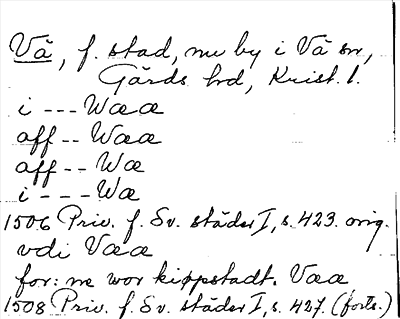 Vä, f. stad, nu by i Vä sn,
Gärds hd, Krist. l.
i --- Wææ
aff -- Wææ
aff -- Wæ
i --- Wæ
1506 Priv. f. Sv. städer I, s. 423. orig.
vdi Væa
for: ne wor kiøpstadt. Væa
1508 Priv. f. Sv. städer I, s. 427. (forts.)